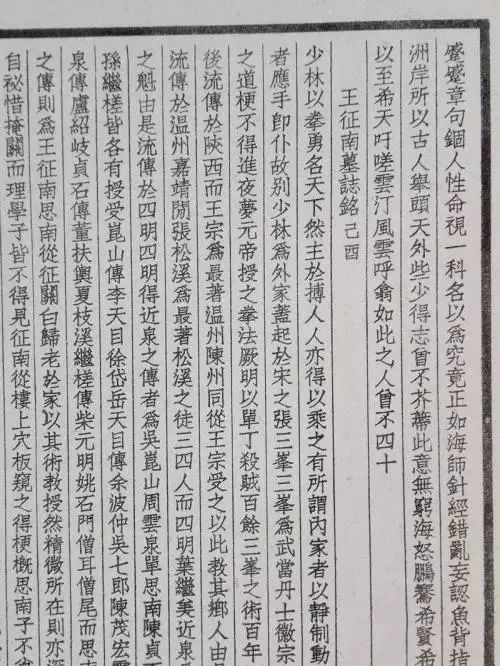 蹙蹙章句錮人性命視一科名以爲究竟正如海師針經錯亂妄認魚背指
洲岸所以古人舉頭天外些少得志曾不芥蔕此意無窮海怒鵬騫希賢希
以至希天吁嗟雲汀風雲呼翕如此之人曾不四十
王征南墓誌銘己酉
少林以拳勇名天下然主於搏人人亦得以乘之有所謂內家者以靜制動
者應手卽仆故别少林爲外家蓋起於宋之張三峯三峯爲武當丹士徽宗
之道梗不得進夜夢元帝授之拳法厥明以單丁殺賊百餘三峯之術百年
後流傳於陝西而王宗爲最著温州陳州同從王宗受之以此教其鄉人由是
流傳於温州嘉靖間張松溪爲最著松溪之徒三四人而四明葉繼美近泉
之魁由是流傳於四明四明得近泉之傳者爲吳崑山周雲泉單思南陳貞
孫繼槎皆各有授受崑山傳李天目徐岱岳天目傳余波仲吳七郎陳茂宏雲
泉傳盧紹岐貞石傳董扶輿夏枝溪繼槎傳柴元明姚石門僧耳僧尾而思
之傳則爲王征南思南從征關白歸老於家以其術教授然精微所在則亦深
自祕惜掩關而理學子皆不得見征南從樓上穴板窺之得梗概思南子不